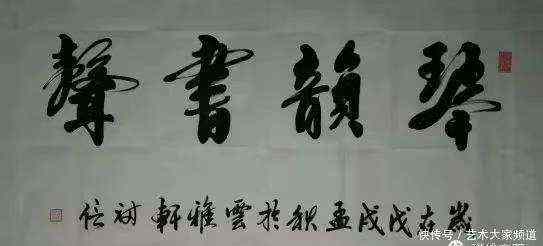 琴韻書聲
歲在戊戌孟秋於雲雅軒
快传号/艺术大家频道